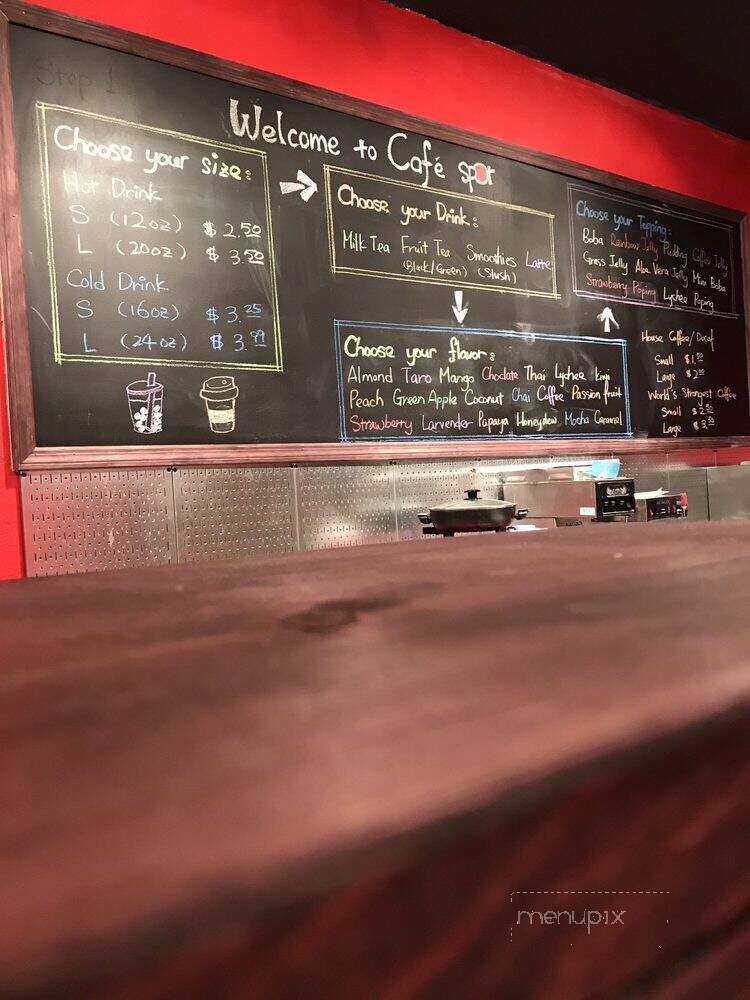 Step 1
Welcome to Café spot
Choose your size:
Hot Drink
S (12oz) $2.50
L (20oz) $3.50
Cold Drink
S (16oz) $3.25
L (24oz) $3.99
Choose your Drink:
Milk Tea Fruit Tea Smoothies Latte
(Black/Green) (Slush)
Choose your flavor:
Almond Taro Mango Choclate Thai Lychee kiwi
Peach Green Apple Coconut Chai Coffee Passion fruit
Strawberry Larvender Papaya Honeydew Mocha Caramel
Choose your Topping:
Boba Rainbow Jelly Pudding Coffee Jelly
Grass Jelly Aloe Vera Jelly Mini Boba
Strawberry Poping Lychee Poping
House Coffee/Decaf
Small
Large
World's Strongest Coffee
Small
Large
menupix